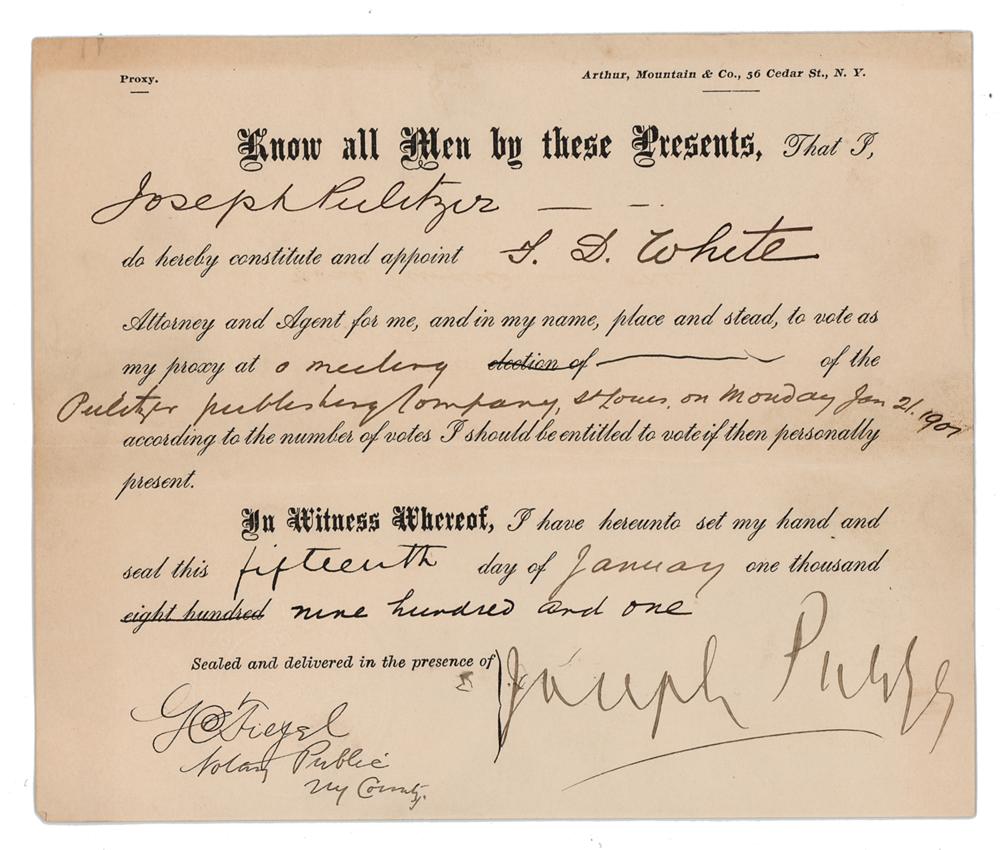 Proxy. Arthur, Mountain & Co., 56 Cedar St., N. Y.
Know all Men by these Presents, That I,
Joseph Pulitzer
do hereby constitute and appoint D. White
Attorney and Agent for me, and in my name, place and stead, to vote as
my proxy at a meeting election of of the
Pulitzer publishing Company, St Louis, on Monday Jan 21. 1901
according to the number of votes I should be entitled to vote if then personally
present.
In Witness Whereof, I have hereunto set my hand and
seal this fifteenth day of January one thousand
eight hundred nine hundred and one
Sealed and delivered in the presence of
Joseph Pulitzer
Notary Public
NY County.